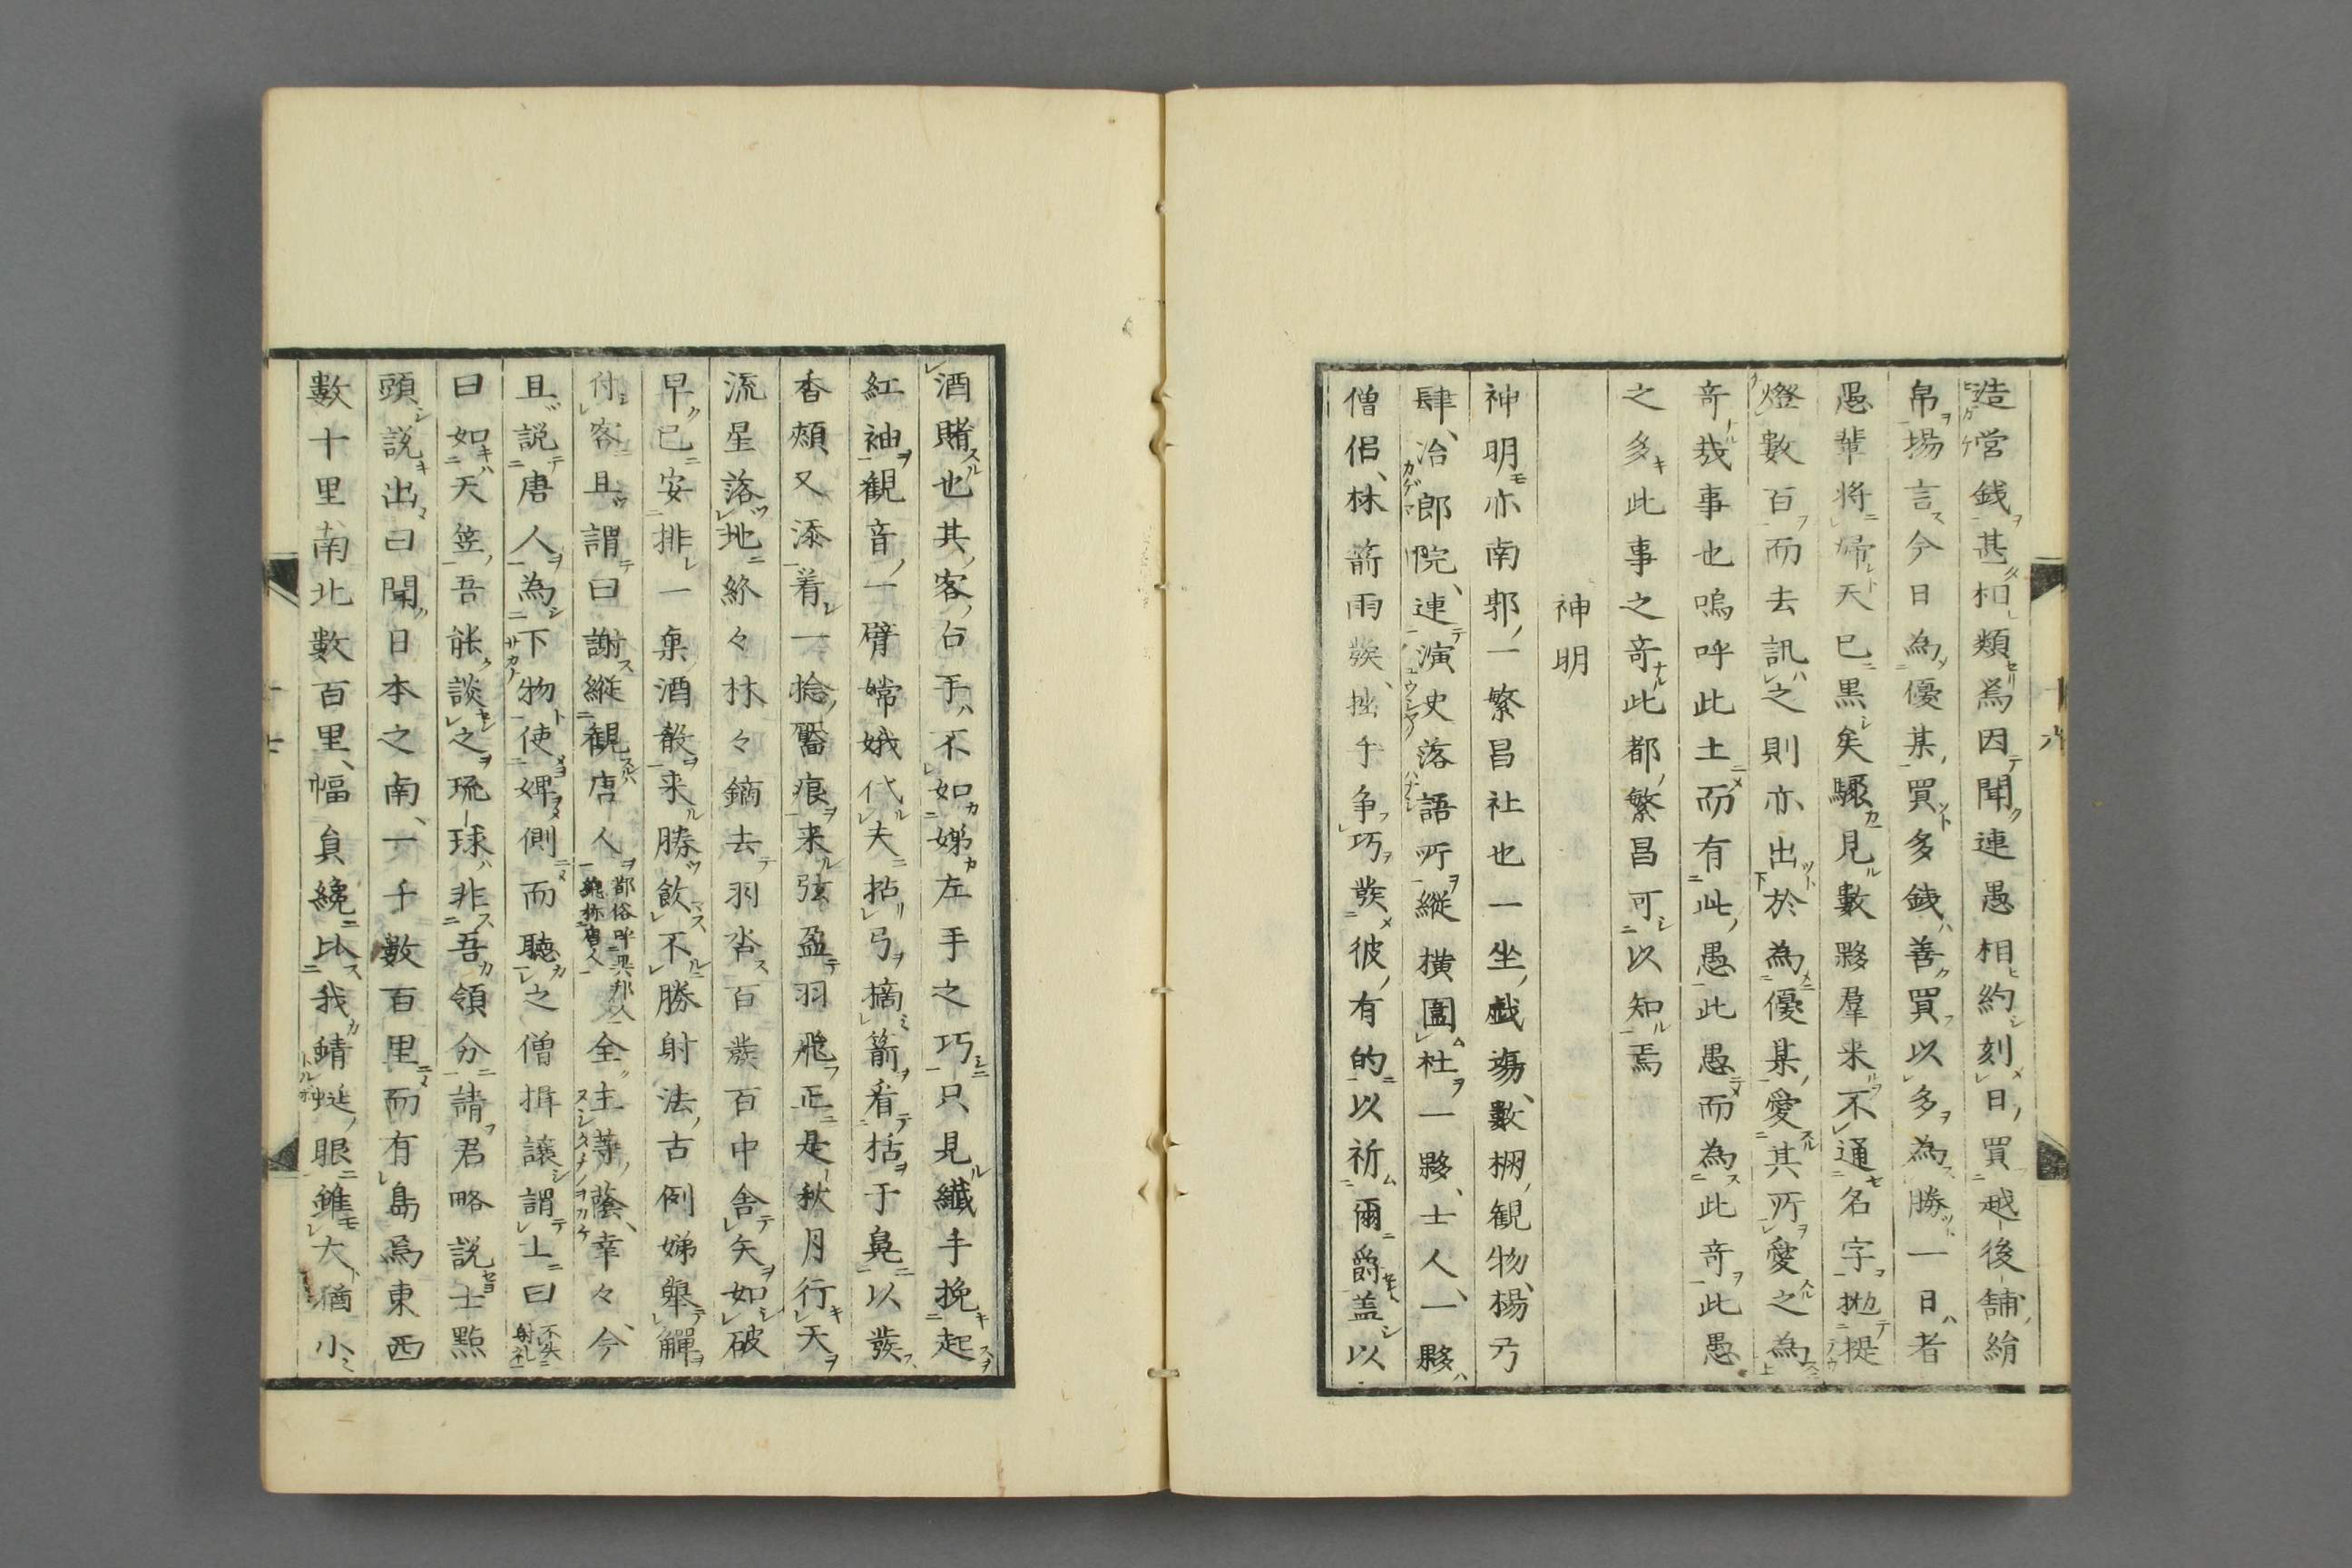 造営銭甚相類焉因聞連愚相約刻日買越後舗絹
帛揚言今日為優某買多銭善買以多為勝一日者
愚輩将帰天已黒矣驟見數夥羣来不通名字抛提
燈數百而去訊之則亦出於為優某愛其所愛之為
竒哉事也嗚呼此土而有此愚此愚而為此竒此愚
之多此事之竒此都繁昌可以知焉
神明
神明亦南郭一繁昌社也一坐戯塲數棚観物楊弓
肆冶郎院連演史落語所縦横圍社一夥士人一夥
僧侶林箭雨發拙手争巧發彼有的以祈爾爵盖以
酒賭也其客右手不如娣左手之巧只見纎手挽起
紅袖観音一臂嫦娥代夫拈弓摘箭看栝于鼻以發
香頬又添着一捻靨痕来弦盈羽飛正是秋月行天
流星落地紛々林々鏑去羽沓百發百中舎矢如破
早已安排一巣酒散来勝飲不勝射法古例娣擧觶
付客且謂曰謝縦観唐人都俗呼異邦人総称唐人全主等蔭幸々今
且説唐人為下物使婢側而聴之僧揖譲謂士曰不失射礼
曰如天竺吾能談之琉球非吾領分請君略説士點
頭説出曰聞日本之南一千數百里而有島焉東西
數十里南北數百里幅員纔比我蜻蜓眼雖大猶小